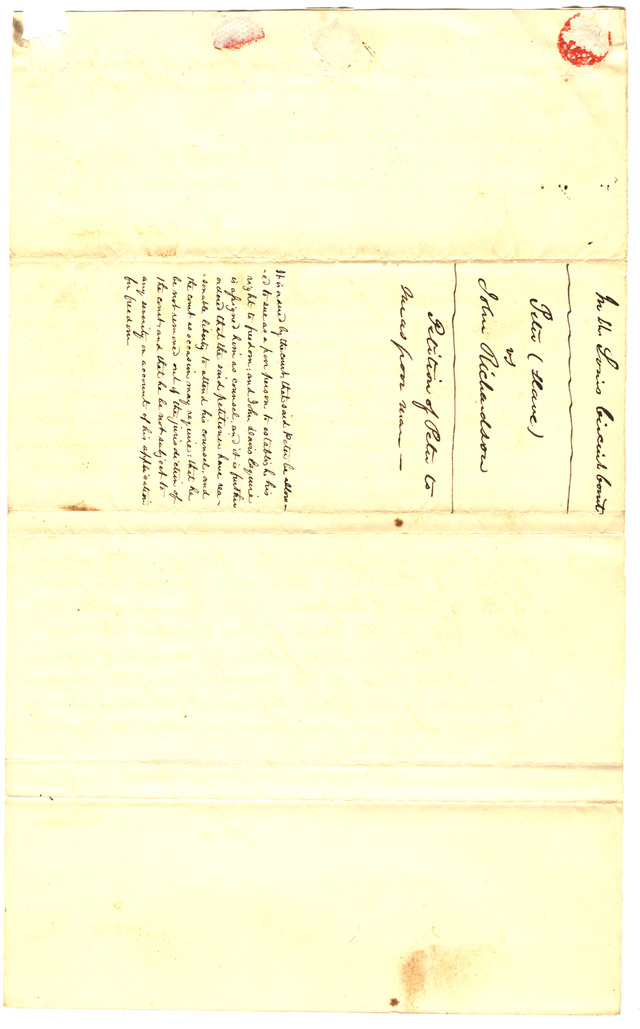 In the St Louis Circuit Court
Peter (Slave)
vs
John Richardson
Petition of Peter to
sue as poor man —
It is ordered by the court, that said Peter be allow-
-ed to sue as a poor person, to establish his
right to freedom; and John Lewis Esquire
is assigned him as counsel, and it is further
ordered that the said petitioner have rea-
-sonable liberty to attend his counsel, and
the court as occasion may require; that he
be not removed out of the jurisdiction of
the court, and that he be not subject to
any severity on account of his application
for freedom